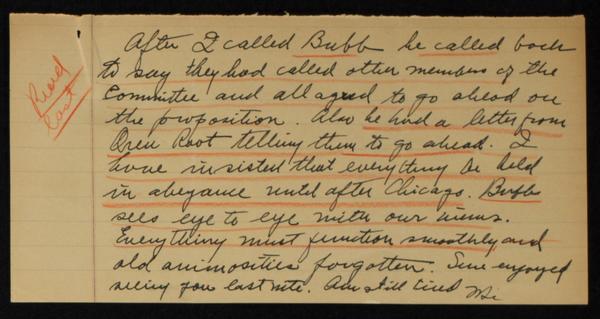 Read
last
After I called Bubb he called back
to say they had called other members of the
Committee and all agreed to go ahead on
the proposition. Also he had a letter from
Oren Root telling them to go ahead. I
have insisted that everything be held
in abeyance until after Chicago. Bubb
sees eye to eye with our views.
Everything must function smoothly and
old animosities forgotten. Sure enjoyed
seeing you last nite. Am still tired